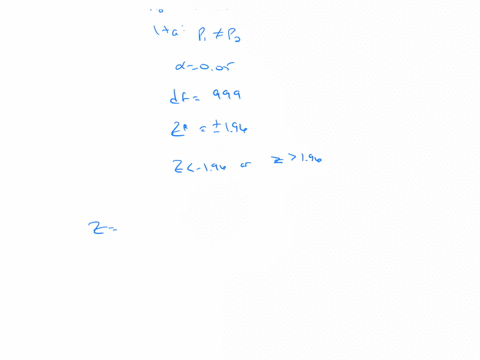 Ha: P₁ ≠ P₂
α=0.05
df= 999
Z* = ±1.96
Z<-1.96 or z>1.96
Z=